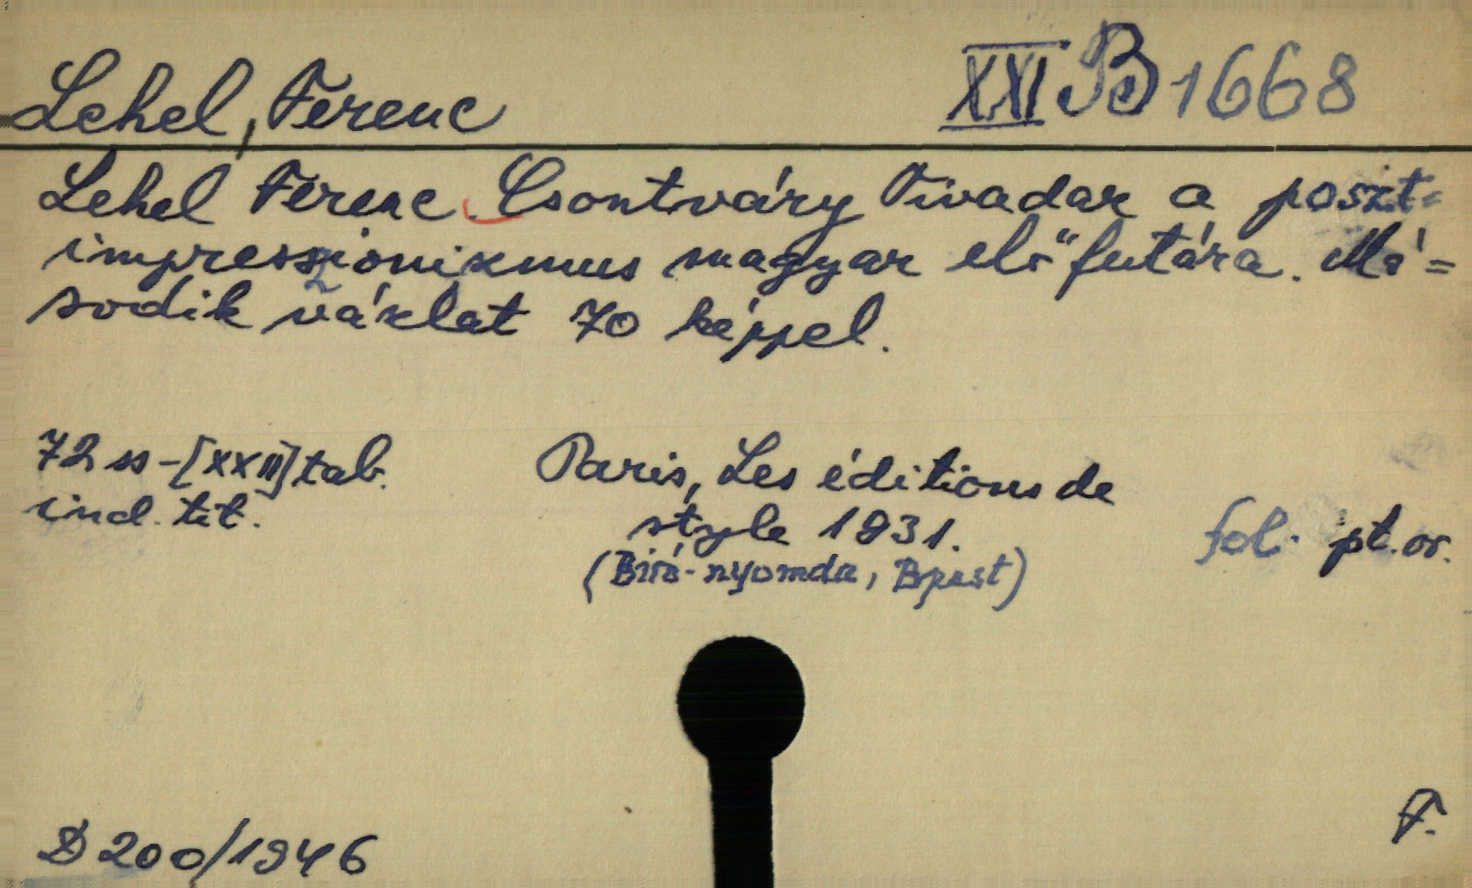 Lehel, Ferenc
XXI B 1668
Lehel Ferenc. Csontváry Tivadar a poszt=
impresszionizmus magyar előfutára. Má=
sodik vázlat 70 képpel.
72 ss -[XXII] tab.
ind. tit.
Paris, Les éditions de
style 1931.
(Biró-nyomda, Bpest)
fol. pt. or.
D 200/1946
F.